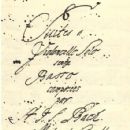 6
Suites a
Violoncello Solo
senza
Basso
composées
par
J. S. Bach